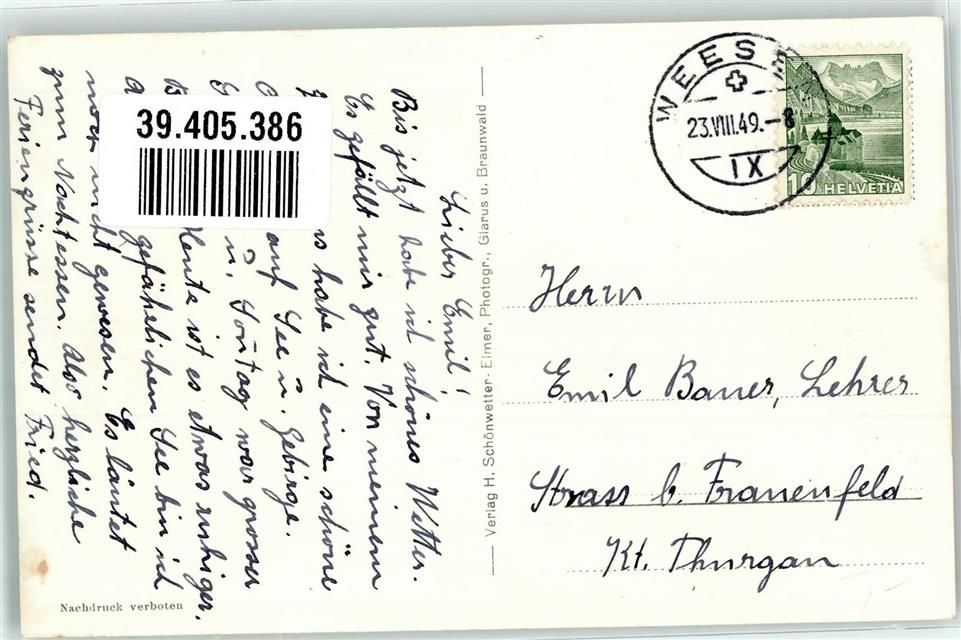 Lieber Emil!
Bis jetzt habe ich schönes Wetter.
Es gefällt mir gut. Von meinem
habe ich eine schöne
auf See u. Gebirge.
u. Sontag war grosser
Heute ist es etwas ruhiger.
gefährlichen See bin ich
noch nicht gewesen. Es läutet
zum Nachtessen. Also herzliche
Feriengrüsse sendet Fried.
39.405.386
Nachdruck verboten
Verlag H. Schönwetter-Elmer, Photogr., Glarus u. Braunwald
WEESEN
23.VIII.49.-8
IX
10 HELVETIA
Herrn
Emil Bauer, Lehrer
Strass b. Frauenfeld
Kt. Thurgau